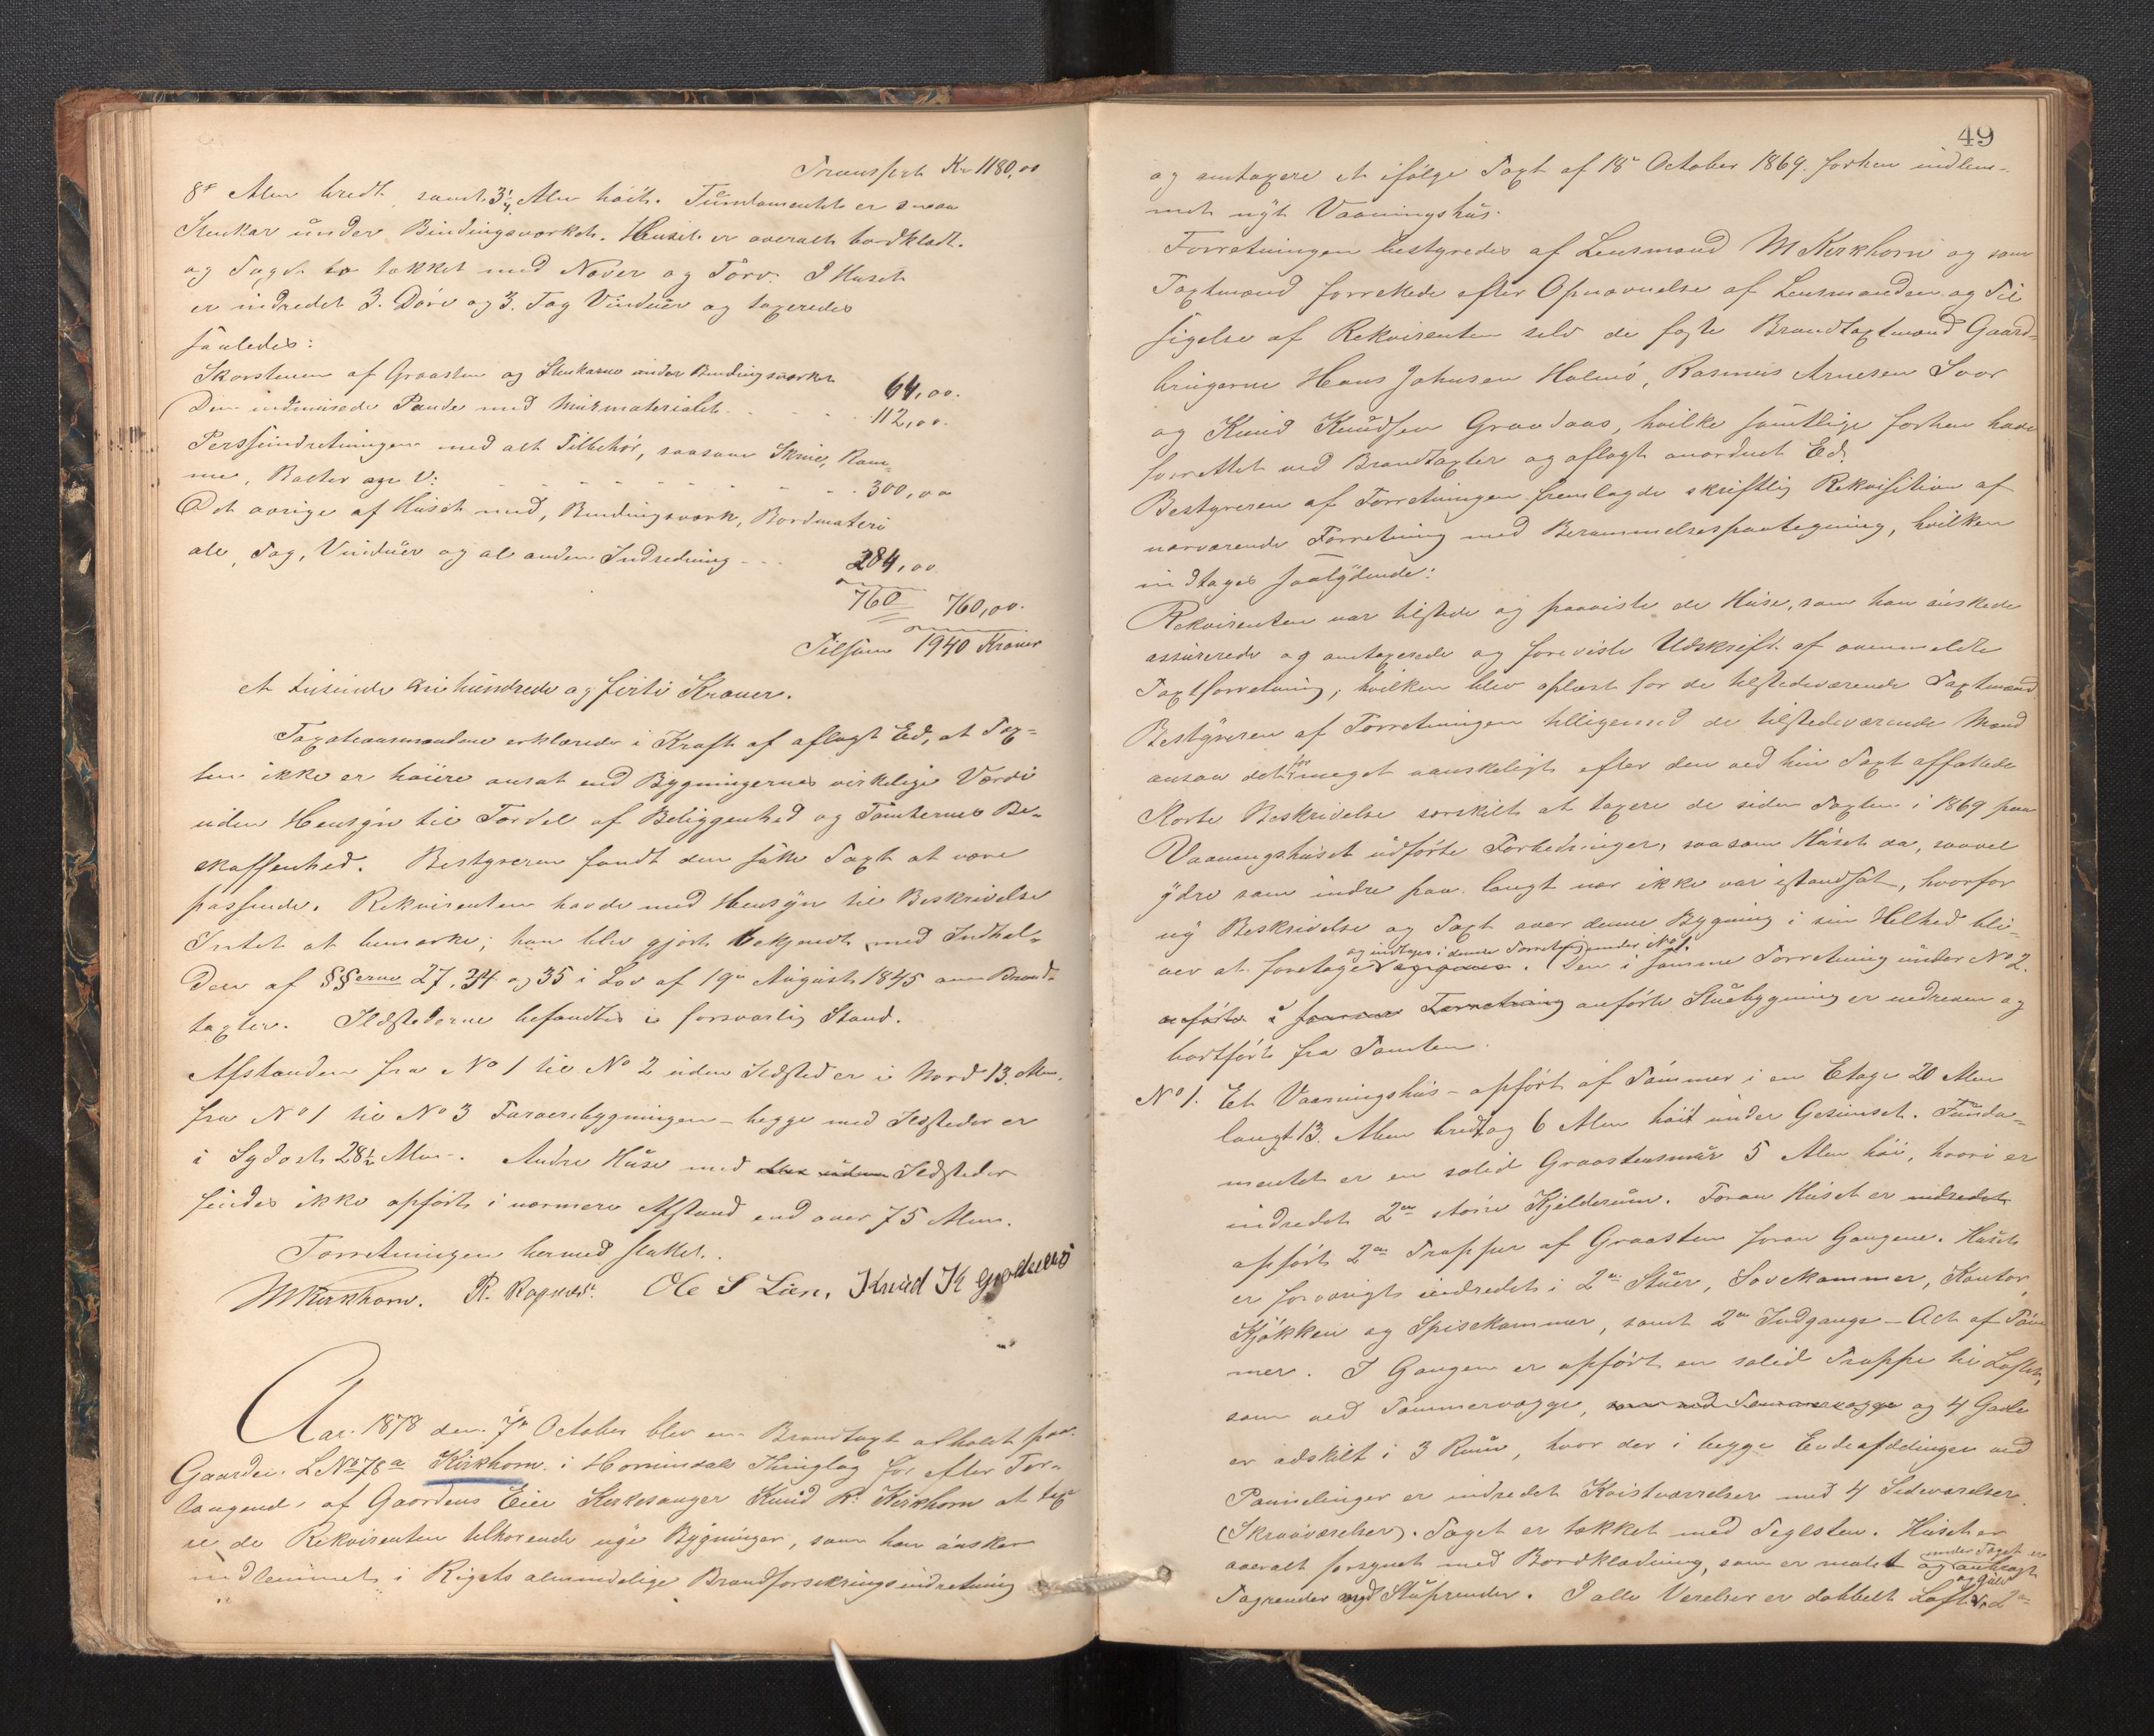 Transport Kr 1180,00
8 Alen bredt, samt 3¼ Alen höit. Fundamentet er smaa
Stenkar under Bindingsværket. Huset er overalt bordklædt.
og Taget tækket med Næver og Törv. I Huset
er indredet 3. Döre og 3. Fag Vinduer og taxeredes
saaledes:
Skorstenen af Graasten og Stenkarne under Bindingsværket 64,00.
Den indmurede Pande med Murmaterialet 112,00.
Perseindretningen med alt Tilbehör, saasom Skruer, Ram-
me, V: 300,00
Det övrige af Huset med, Bindingsværk, Bordmateri
ale, Tag, Vinduer og al anden Indredning 284,00
760 760,00.
Tilsam 1940 Kroner
et tusinde ni hundrede og förti Kroner.
Taxationsmændene erklærede i Kraft af aflagt Ed, at Tax-
ten ikke er höiere ansat end Bygningernes virkelige Værdi
uden Hensyn til Fordel af Beliggenhed og Tomternes Be-
skaffenhed. Bestyreren fandt den satte Taxt at være
passende. Rekvirenten havde med Hensyn til Beskrivelse
Intet at bemærke; han blev gjort bekjendt med Indhol-
det af §§erne 27, 34 og 35 i Lov af 19de August 1845 om Brand-
taxter. Ildstederne befandtes i forsvarlig Stand.
Afstanden fra No 1 til No 2 uden Ildsted er i Nord 13 Alen.
fra No 1 til No 3 Farveribygningen - begge med Ildsteder er
i Sydost 28½ Alen. Andre Huse med eller uden Ildsteder
findes ikke opfört i nærmere Afstand end over 75 Alen.
Forretningen hermed sluttet.
MKirkhorn. R. Ole S Lien, Knud K
Aar 1878 den 7de October blev en Brandtaxt afholdt paa
Gaarden LNo 78a Kirkhorn i Hornindals Thinglag for efter For-
langende af Gaardens Eier Kirkesanger Knud R. Kirkhorn at tax
re de Rekvirenten tilhörende nye Bygninger, som han önsker
indlemmet i Rigets almindelige Brandforsikringsindretning
49
og omtaxere et ifölge Taxt af 18de October 1869 forhen indlem-
met nyt Vaaningshus.
Forretningen bestyredes af Lensmand M Kirkhorn og som
Taxtmænd forrettede efter Opnævnelse af Lensmanden og Til
sigelse af Rekvirenten selv de faste Brandtaxtmænd Gaard-
brugerne Hans Johnsen Holmö, Rasmus Arnesen Svor
og Knud Knudsen Grodaas, hvilke samtlige forhen have
forrettet ved Brandtaxter og aflagt anordnet Ed.
Bestyreren af Forretningen fremlagde skriftlig Rekvisition af
nærværende Forretning med Berammelsespaategning, hvilken
indtages saalydende:
Rekvirenten var tilstede og paaviste de Huse, som han önskede
assurerede og omtaxerede og foreviste Udskrift af ovenmeldte
Taxtforretning, hvilken blev oplæst for de tilstedeværende Taxtmænd
Bestyreren af Forretningen tilligemed de tilstedeværende Mænd
ansaa det for meget vanskeligt efter den ved hin Taxt affattede
Korte Beskrivelse særskilt at taxere de siden Taxten i 1869 paa
Vaaningshuset udförte Forbedringer, saasom Huset da, saavel
ydre som indre paa langt nær ikke var istandsat, hvorfor
ny Beskrivelse og Taxt over denne Bygning i sin Helhed bli-
ver at foretage og indtages i denne Forretning under No 1. Den i samme Forretning under No 2.
anförte i samme Forretning anförte Stuebygning er nedreven og
bortfört fra Tomten.
No 1. Et Vaaningshus - opfört af Tömmer i en Etage 20 Alen
langt 13 Alen bredt og 6 Alen höit under Gesimset. Funda-
mentet er en solid Graastensmur 5 Alen höi, hvori er
indredet 2de större Kjelderrum. Foran Huset er indredet
opfört 2de Trapper af Graasten foran Gangene. Huset
er forövrigt indredet i 2de Stuer, Sovekammer, Kontor,
Kjökken og Spisekammer, samt 2de Indgange - Alt af Töm
mer. I Gangen er opfört en solid Trappe til Loftet,
som ved Tömmervægge, som ved Tömmervægge og 4 Gavle
er adskilt i 3 Rum, hvor der i begge Endeafdelinger ved
Panelinger er indredet Kvistværelser med 4 Sideværelser
(Skraaværelser). Taget er tækket med Teglsten. Huset er
overalt forsynet med Bordklædning, som er malet og under Taget er anbragt
Tagrender med Stuprender. I alle Værelser er dobbelt Loft og Gulv